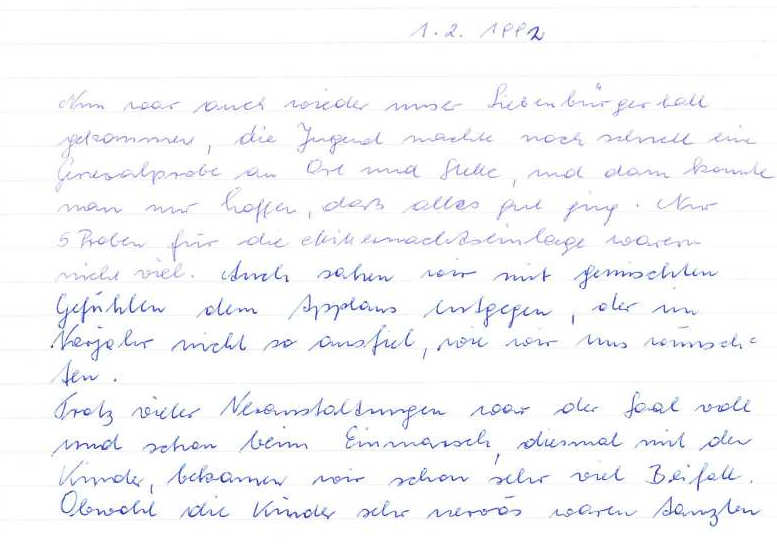 1. 2. 1992
Nun war auch wieder unser Siebenbürgerball
gekommen, die Jugend machte noch schnell eine
Generalprobe an Ort und Stelle, und dann konnte
man nur hoffen, daß alles gut ging. Nur
5 Proben für die Mitternachtseinlage waren
nicht viel. Auch sahen wir mit gemischten
Gefühlen dem Applaus entgegen, der im
Vorjahr nicht so ausfiel, wie wir uns wünsch-
ten.
Trotz vieler Veranstaltungen war der Saal voll
und schon beim Einmarsch, diesmal mit den
Kinder, bekamen wir schon sehr viel Beifall.
Obwohl die Kinder sehr nervös waren tanzten